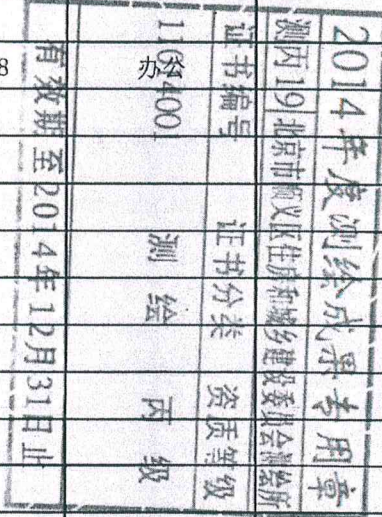 8
办公
2014年度测绘成果专用章
测丙191北京市顺义区住房和城乡建设委员会测绘所
证书编号 证书分类 资质等级
1104001 测绘 丙级
有效期至2014年12月31日止